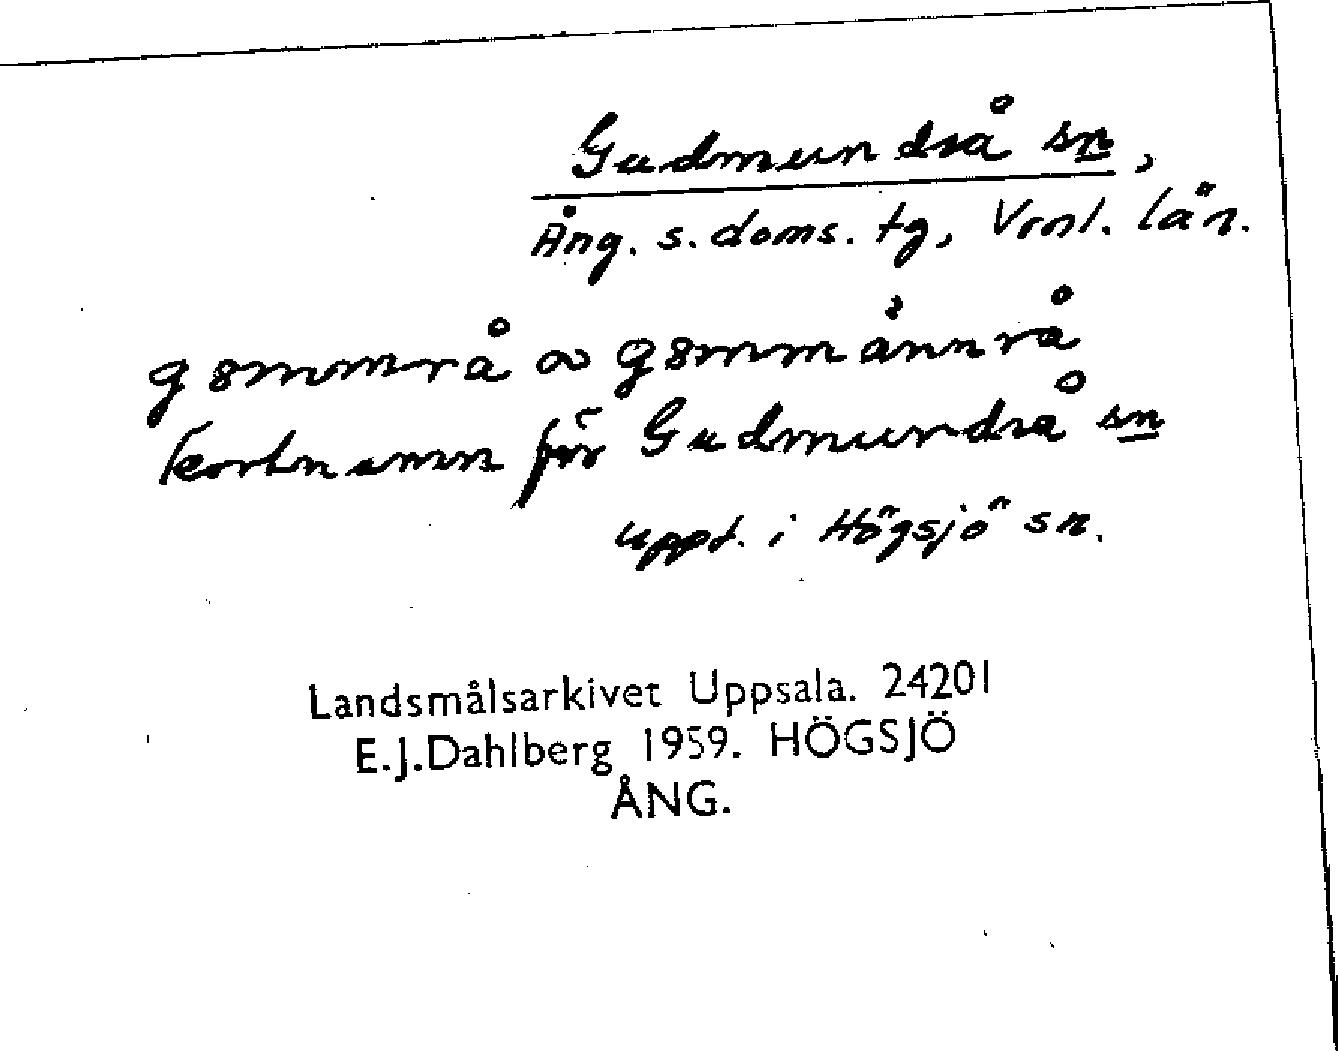 Gudmundrå sn,
Ång. s. doms. tg, Vrnl. län.
gommrå ∞ gommånnrå
kortnamn för Gudmundrå sn
uppt. i Högsjö sn.
Landsmålsarkivet Uppsala. 24201
E.J.Dahlberg 1959. HÖGSJÖ
ÅNG.